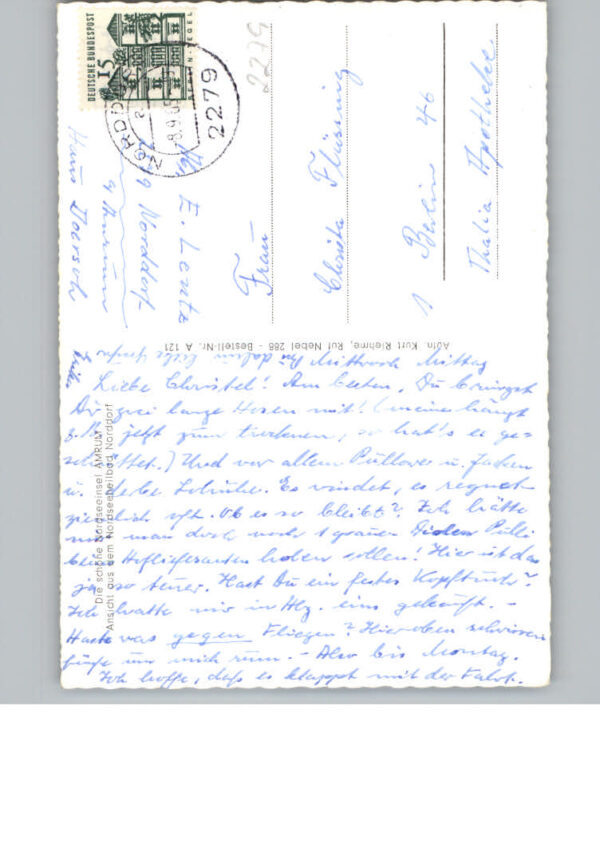 DEUTSCHE BUNDESPOST
15
BERLIN-TEGEL
NORDDORF
8.9.65
2279
2279
Abs. E. Lentz
2279 Norddorf
a Amrum
Haus Doersch
Frau
Christa Flüssing
1 Berlin 46
Thalia Apotheke
Aufn. Kurt Riehme, Ruf Nebel 288 - Bestell-Nr. A 121
Die schöne Nordseeinsel AMRUM
Ansicht aus dem Nordseeheilbad Norddorf
Mittwoch Mittag
Liebe Christel! Am besten, Du bringst
Dir zwei lange Hosen mit! (meine hängt
z.B. jetzt zum trocknen, so hat's es ge-
schüttet.) Und vor allem Pullover u. Jacken
u. derbe Schuhe. Es windet, es regnet
ziemlich oft. Ob es so bleibt? Ich hätte
man doch noch 1 grauen dicken Pulli
bei holen sollen! Hier ist das
ja so teuer. Hast Du ein festes Kopftuch?
Ich hatte mir in Hbg. eins gekauft. -
Haste was gegen Fliegen? Hier oben schwirren
um mich rum. - Also bis Montag.
Ich hoffe, daß es klappt mit der Fahrt.
liebe Grüße